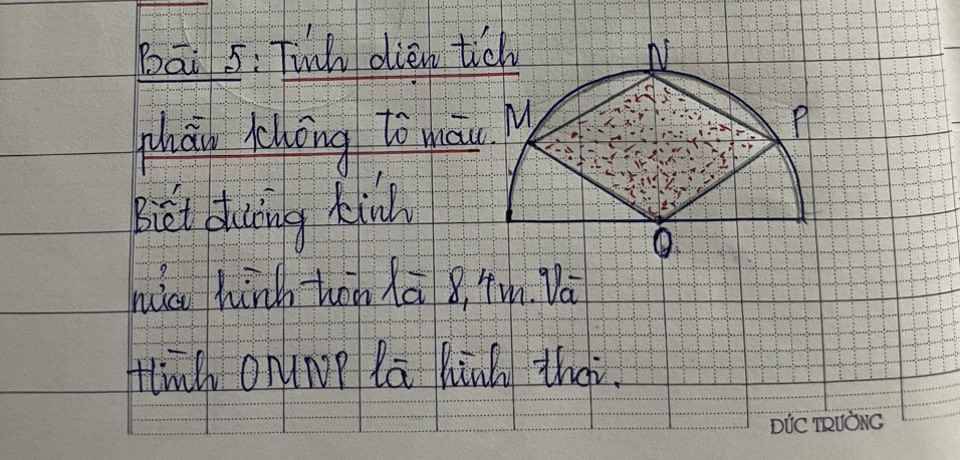 Bài 5: Tính diện tích
phần không tô màu.
Biết đường kính
nửa hình tròn là 8,4m. Và
Hình OMNP là hình thoi.
M
N
P
O
ĐỨC TRƯỜNG